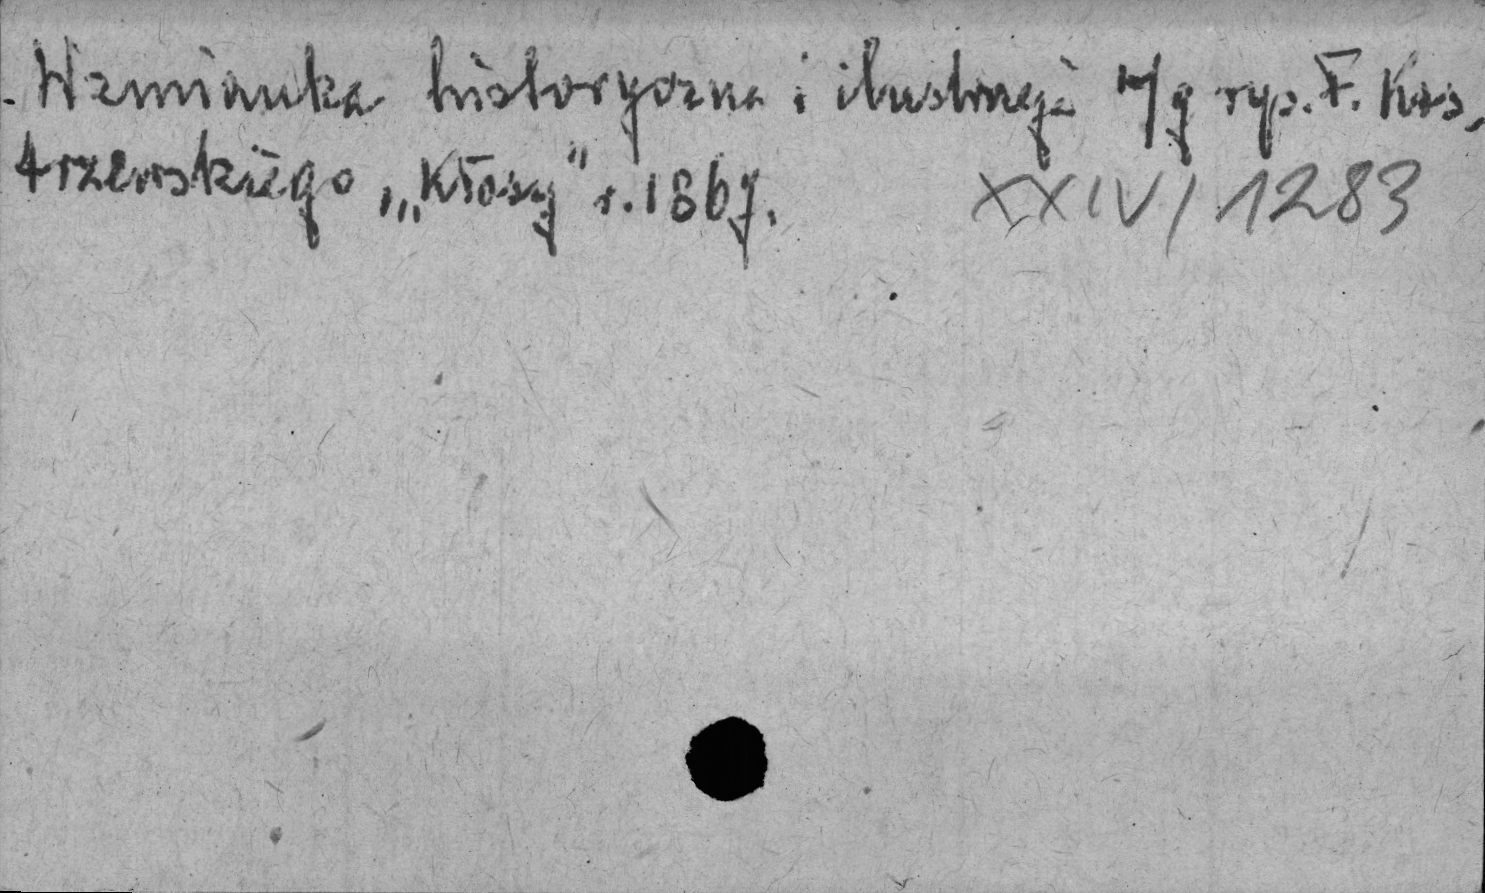 Wzmianka historyczna i ilustracja w/g rys. F. Kos,
trzewskiego „Kłosy" r. 1867.
XXIV/1283